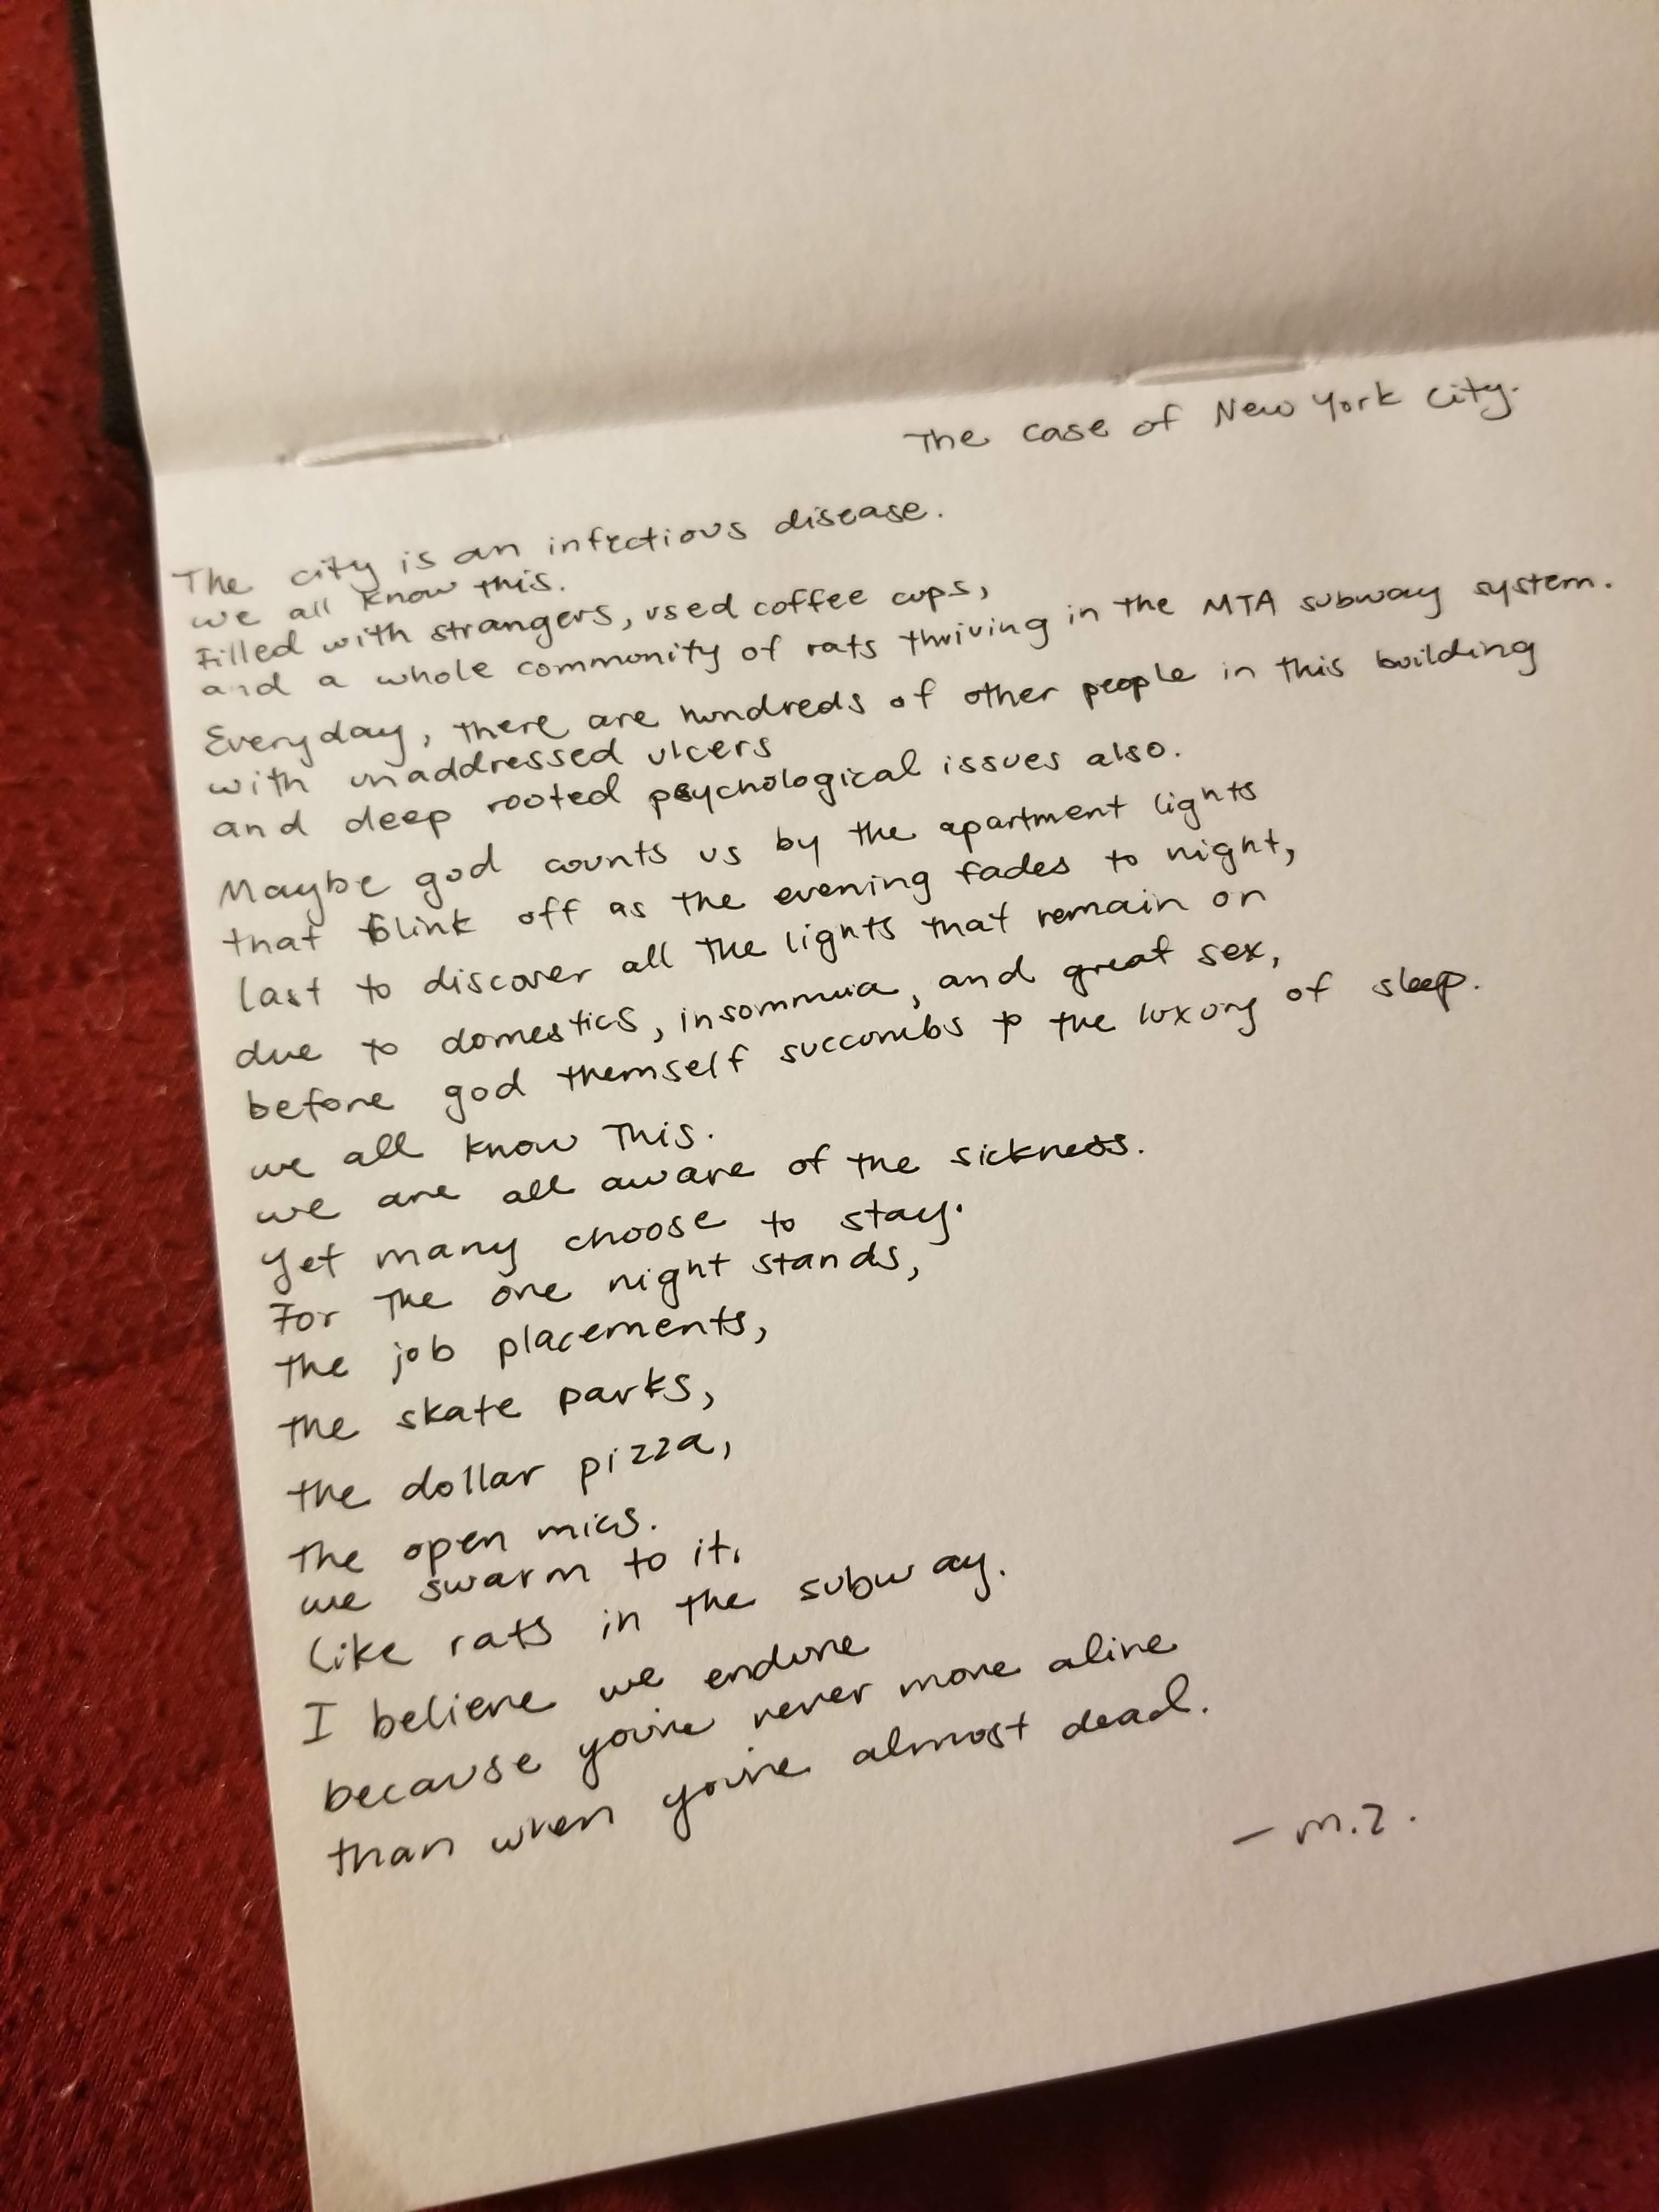 The case of New York City.
The city is an infectious disease.
we all know this.
Filled with strangers, used coffee cups,
and a whole community of rats thriving in the MTA subway system.
Everyday, there are hundreds of other people in this building
with unaddressed ulcers
and deep rooted psychological issues also.
Maybe god counts us by the apartment lights
that blink off as the evening fades to night,
last to discover all the lights that remain on
due to domestics, insommnia, and great sex,
before god themself succumbs to the luxury of sleep.
we all know this.
we are all aware of the sickness.
Yet many choose to stay.
For the one night stands,
the job placements,
the skate parks,
the dollar pizza,
the open mics.
we swarm to it.
like rats in the subway.
I believe we endure
because you're never more alive
than when you're almost dead.
- M.Z.